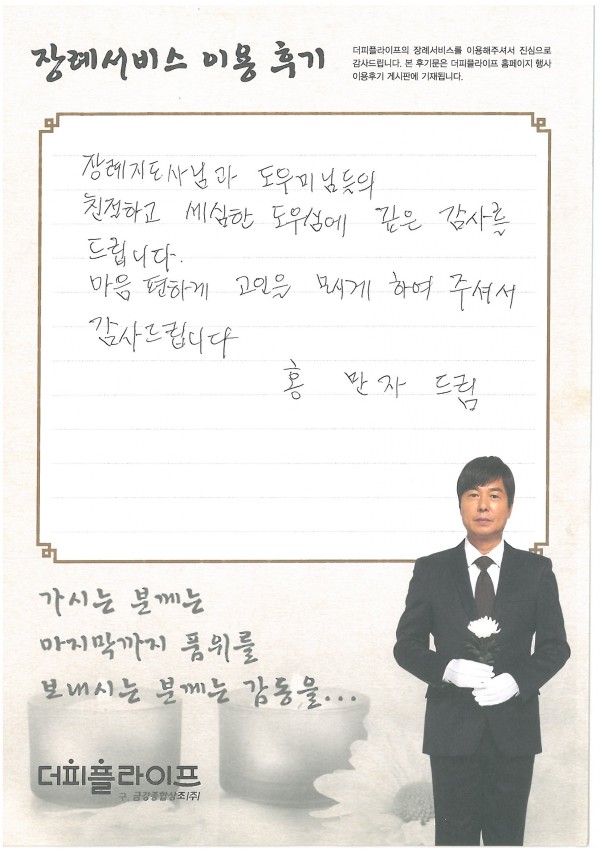 장례서비스 이용 후기
더피플라이프의 장례서비스를 이용해주셔서 진심으로
감사드립니다. 본 후기문은 더피플라이프 홈페이지 행사
이용후기 게시판에 기재됩니다.
장례지도사님과 도우미님들의
친절하고 세심한 도우심에 깊은 감사를
드립니다.
마음 편하게 고인을 모시게 하여 주셔서
감사드립니다
홍 만 자 드림
가시는 분께는
마지막까지 품위를
보내시는 분께는 감동을...
더피플라이프
구. 금강종합상조(주)